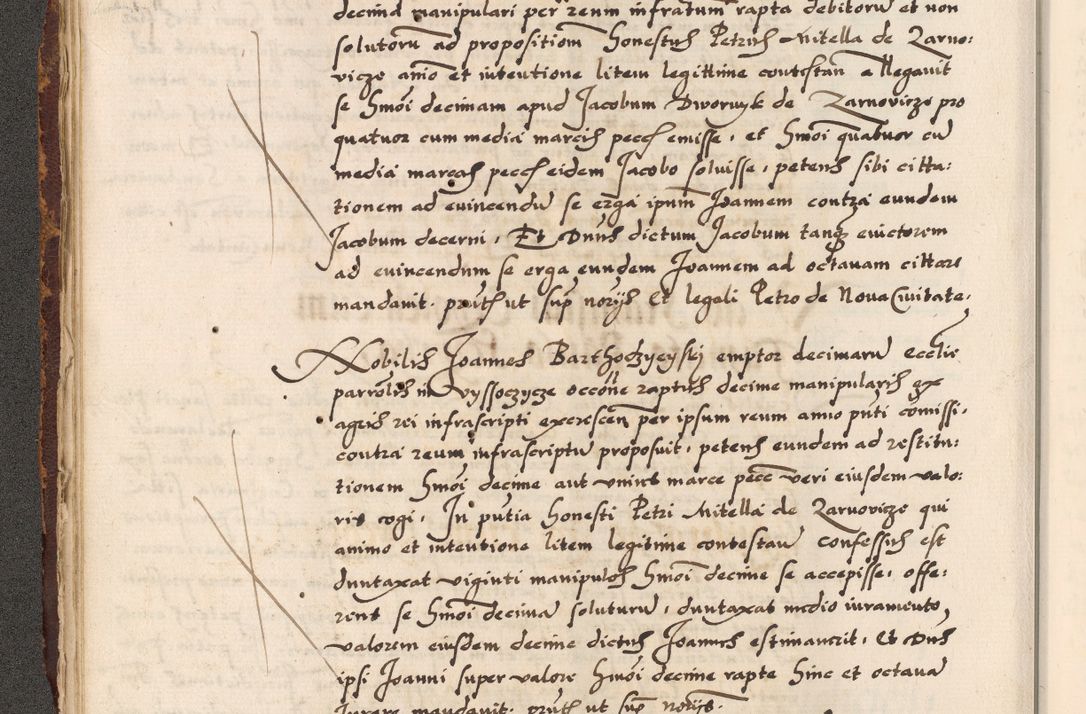 decima manipulari per reum infratum rapta debitoru et non
solutoru ad propositiom Honestus Petrus Mitella de Zarno:
vicze animo et intentione litem legittime contestan allegavit
se Hmoi decimam apud Jacobum Dwornyk de Zarnovicze pro
quatuor cum media marcis pecc emisse, et Hmoi quatuor cu
media marcas pecc eidem Jacobo soluisse, petens sibi citta:
tionem ad euincendu se erga ipum Joannem contra eundem
Jacobum decerni, Et Dnus dictum Jacobum tanq euictorem
ad euincendum se erga eundem Joannem ad octauam cittare
mandauit. prutis ut sup norijs Et legali Petro de Nova Ciuitate,
Nobilis Joannes Barthodzyeyskj emptor decimaru Ecclie
parrolis in Wyssoczycze occone raptus decime manipularis ex
agris rei infrascripti excrescen per ipsum reum anno pnti comissi,
contra reum infrascriptu proposuit, petens eundem ad restitu:
tionem Hmoi decime aut vnius marce pecc veri eiusdem valo:
ris cogi, In putia Honesti Petri Mitella de Zarnovicze qui
animo et intentione litem legitime contestan confessus est
duntaxat viginti manipulos Hmoi decime se accepisse, offe:
rens se Hmoi decima soluturu, duntaxat medio iuramento,
valorem eiusdem decime dictus Joannes estimauerit, Et Dnus
ipsi Joanni super valore Hmoi decime rapte hinc et octaua
Jurare mandauit. prutis ut sup norijs.